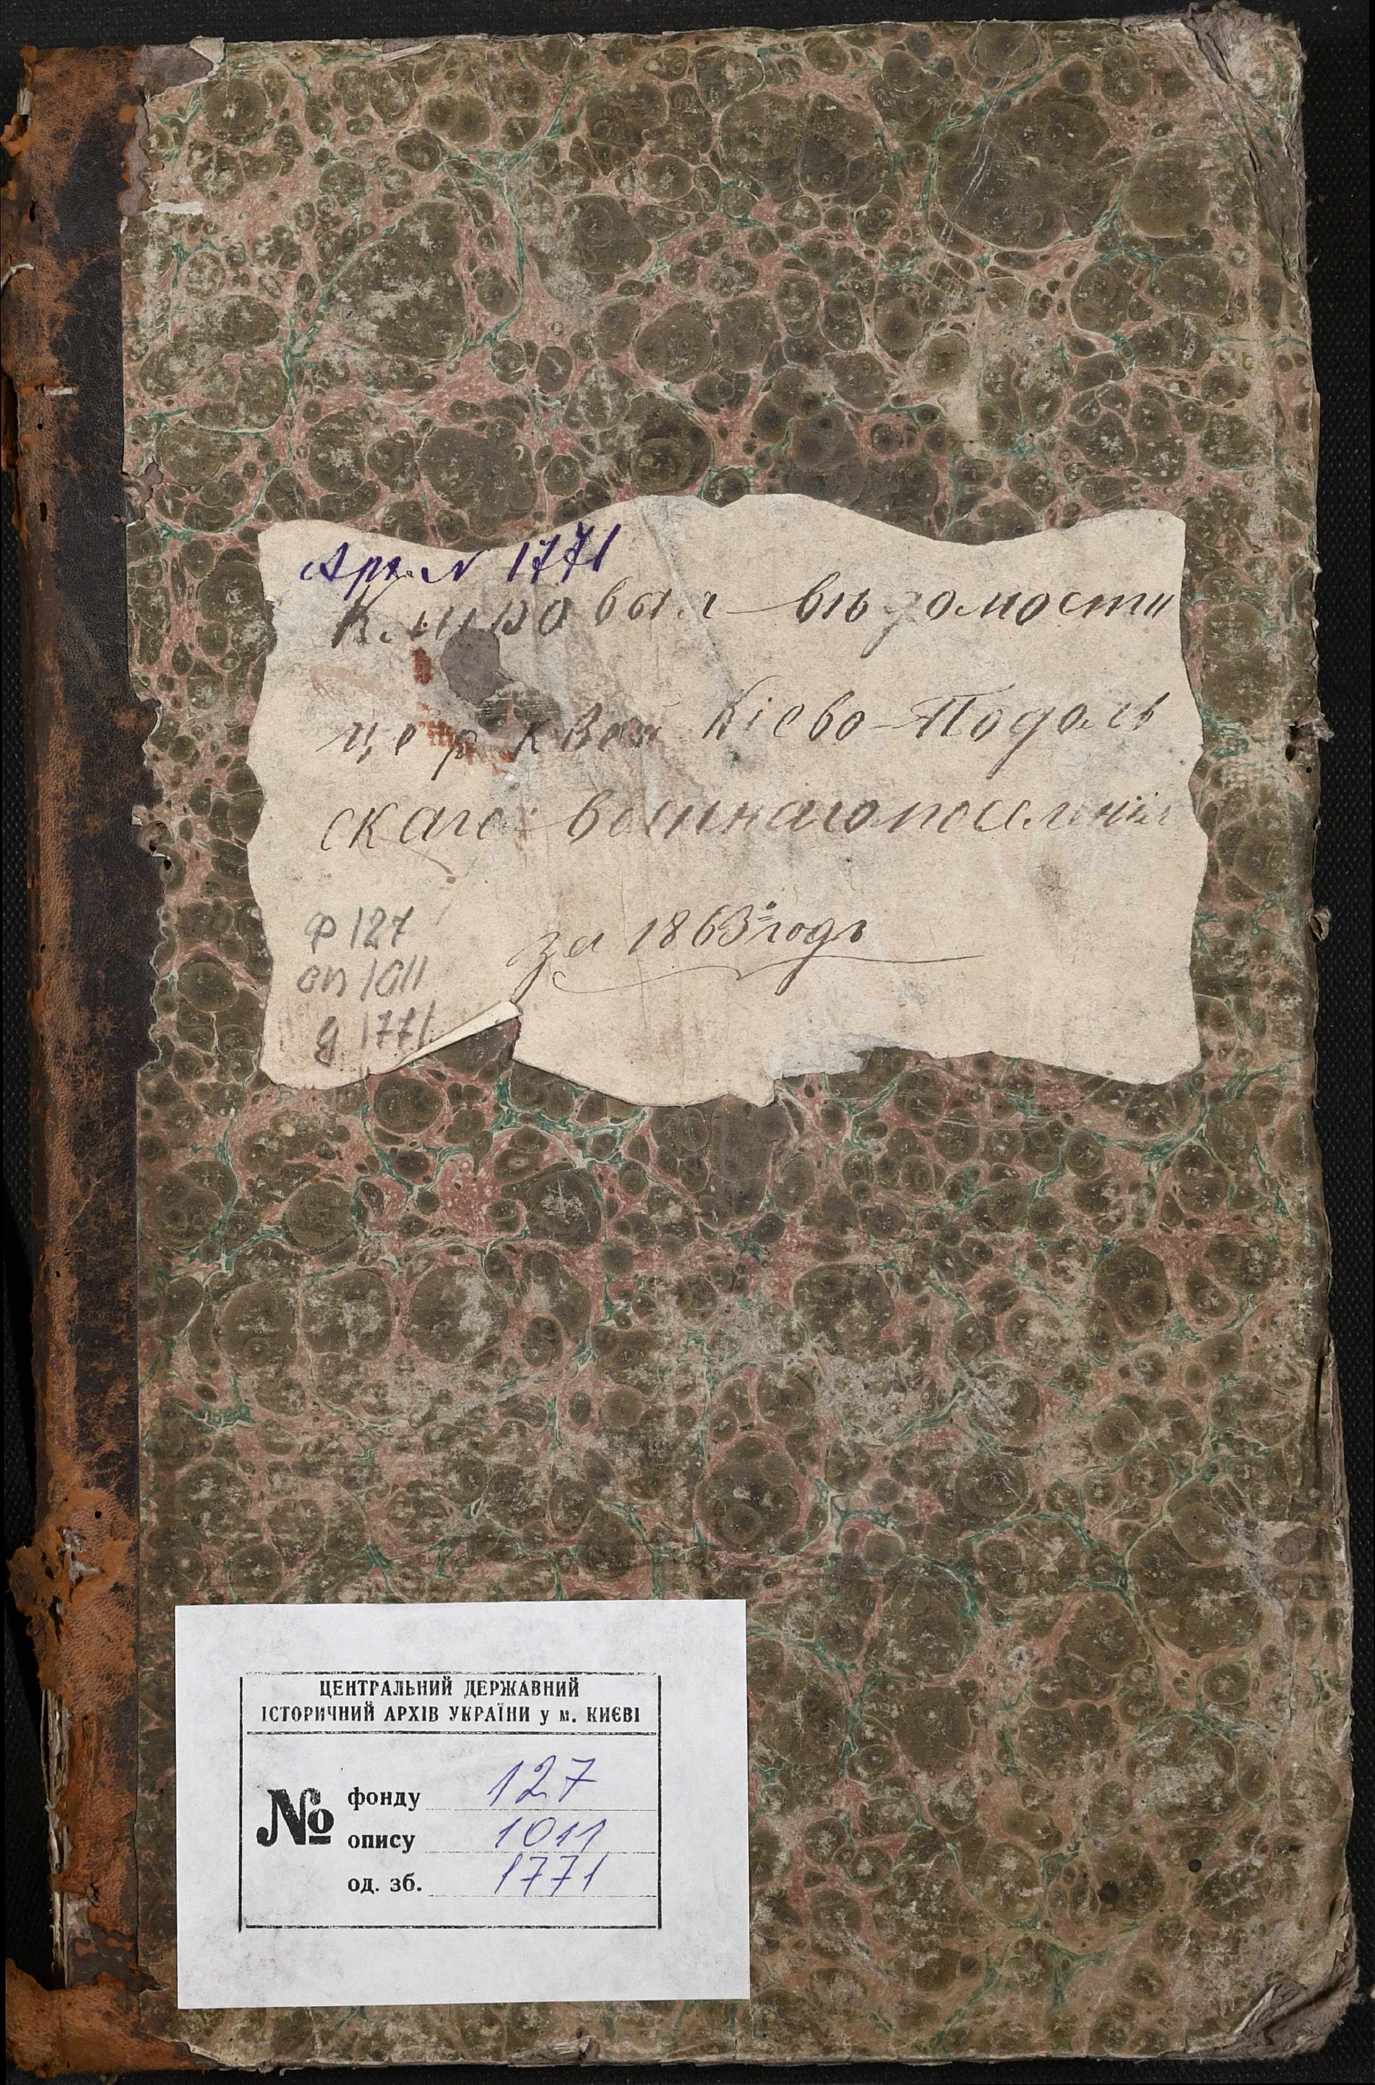 Арх. № 1771
Клировыя вѣдомости
церквей Кіево-Подоль
скаго военнаго поселенія
за 1863й годъ
Ф 127
оп 1011
д 1771
ЦЕНТРАЛЬНИЙ ДЕРЖАВНИЙ
ІСТОРИЧНИЙ АРХІВ УКРАЇНИ у м. КИЄВІ
№
фонду 127
опису 1011
од. зб. 1771